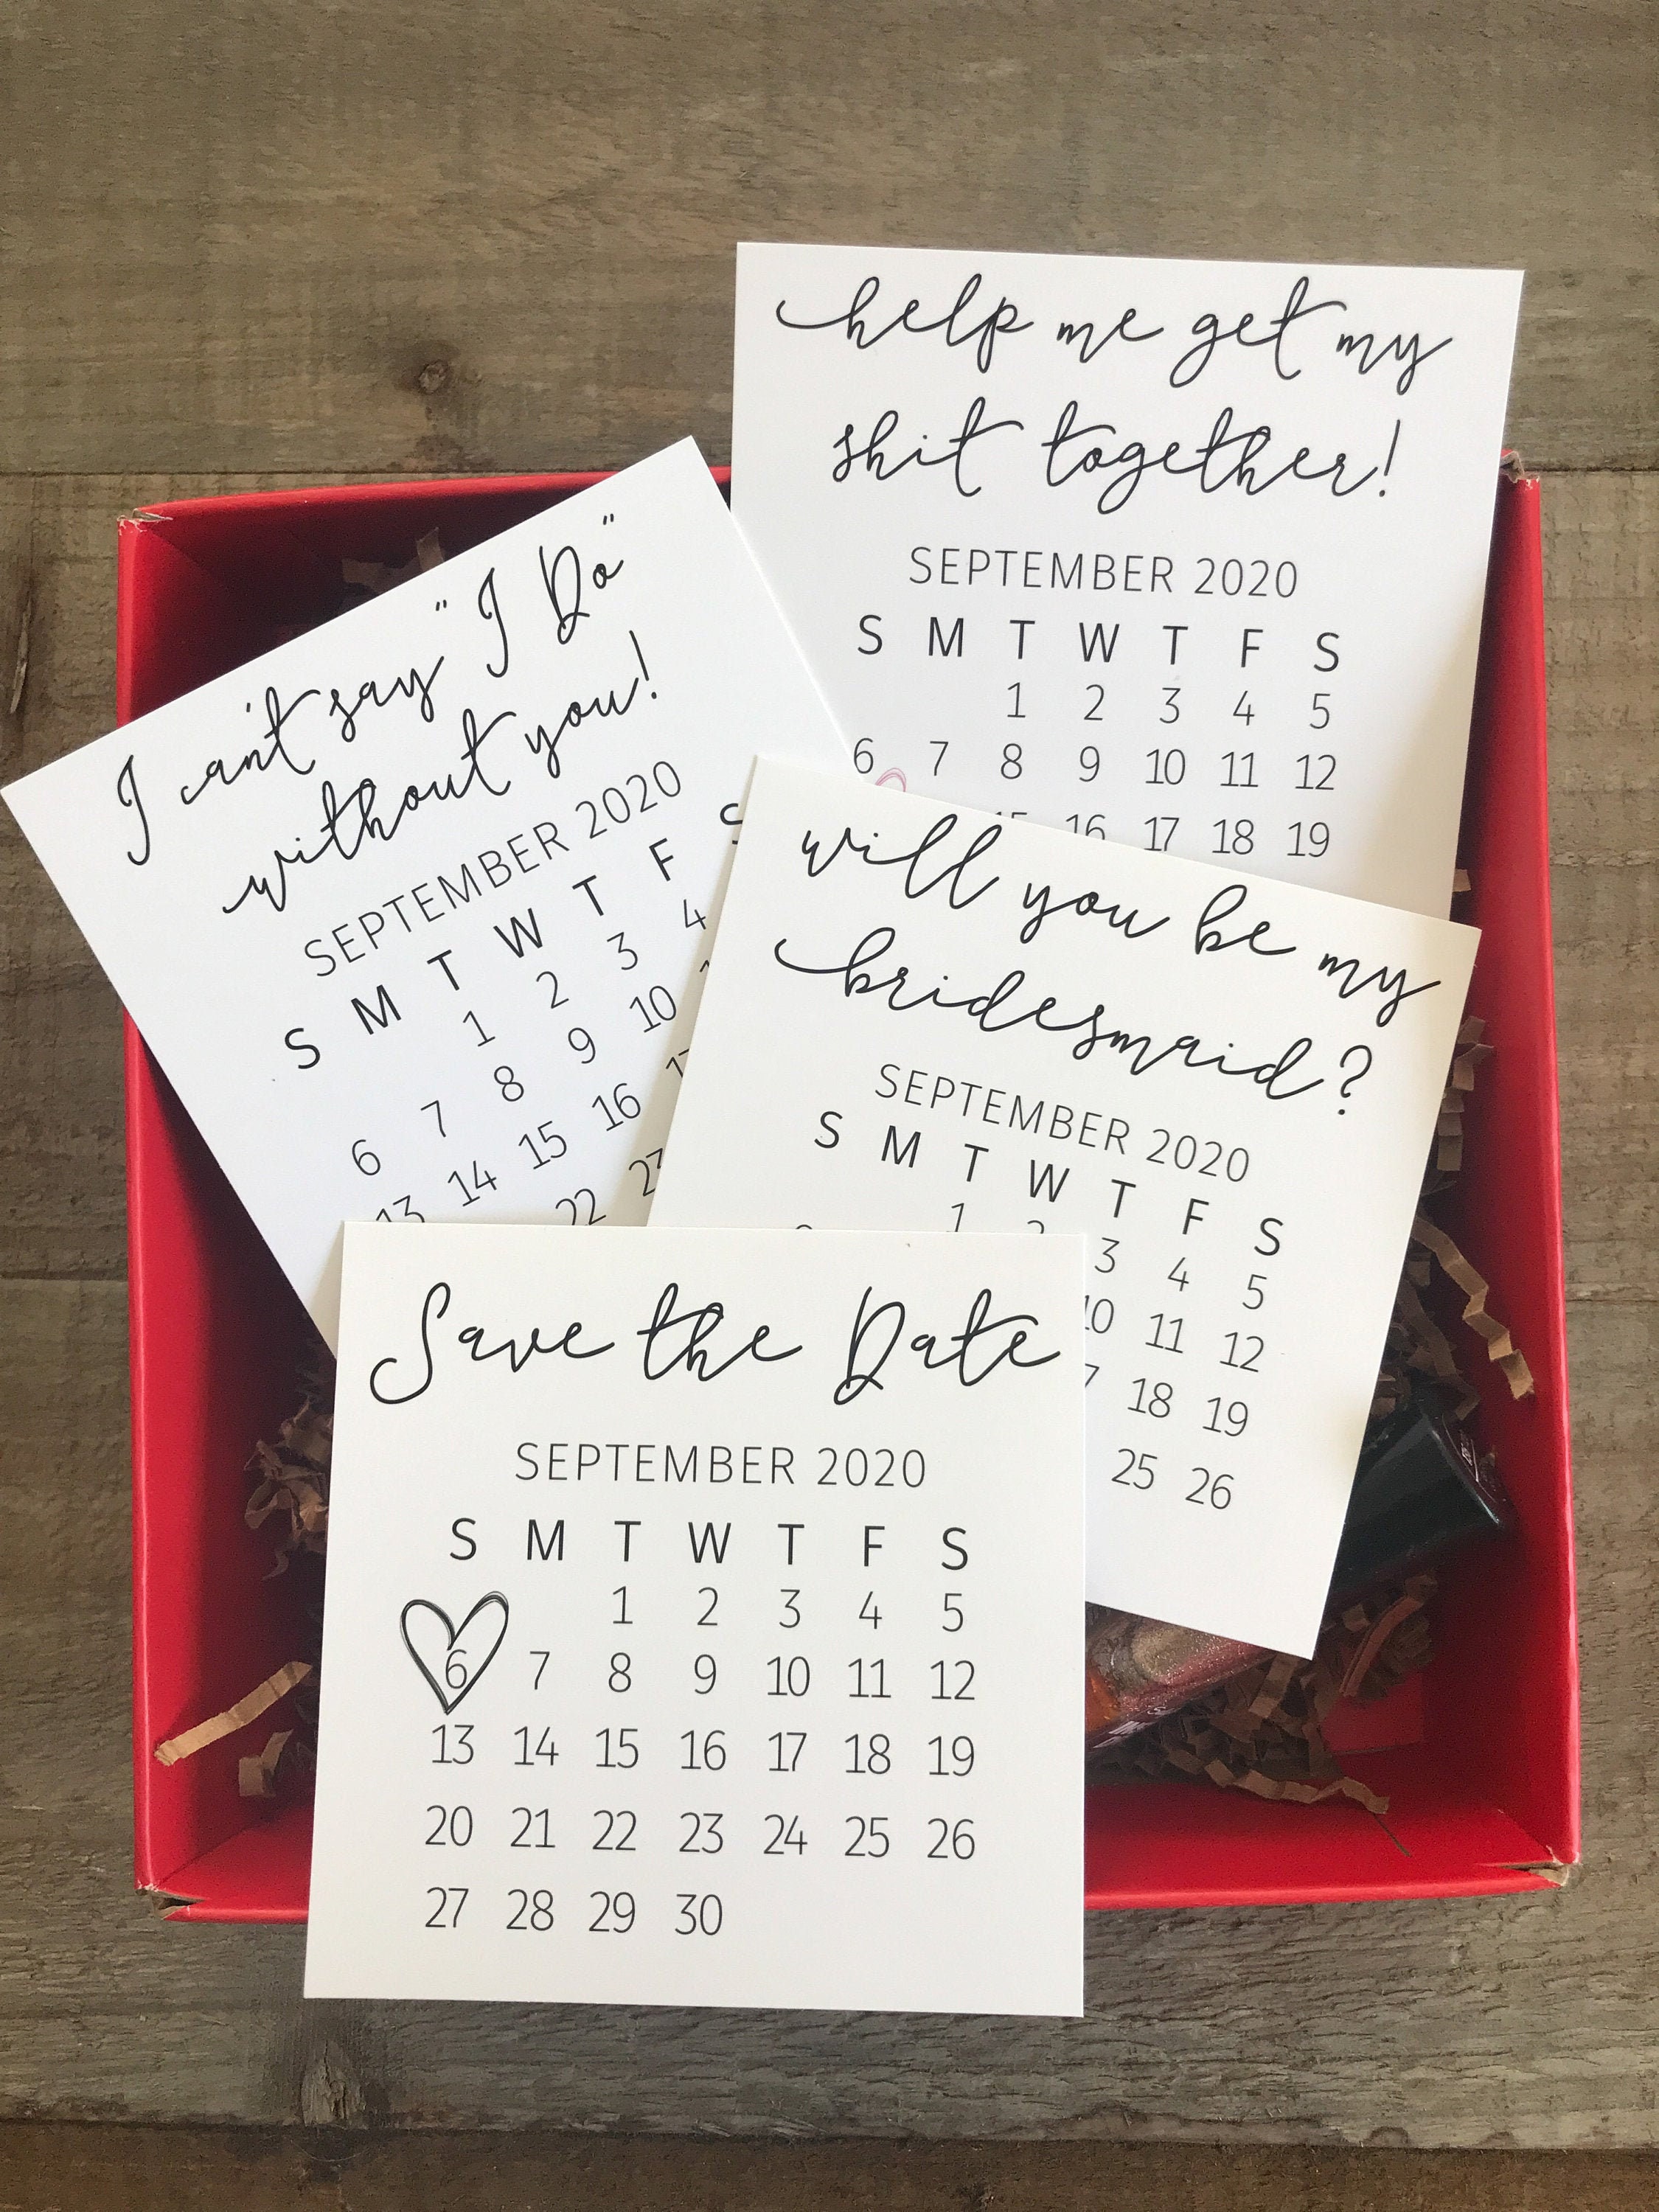 help me get my
shit together!
SEPTEMBER 2020
S M T W T F S
1 2 3 4 5
6 7 8 9 10 11 12
16 17 18 19
I can't say "I Do"
without you!
SEPTEMBER 2020
S M T W T F S
1 2 3 4
6 7 8 9 10
13 14 15 16
22 23
will you be my
bridesmaid?
SEPTEMBER 2020
S M T W T F S
1 2 3 4 5
10 11 12
18 19
25 26
Save the Date
SEPTEMBER 2020
S M T W T F S
1 2 3 4 5
6 7 8 9 10 11 12
13 14 15 16 17 18 19
20 21 22 23 24 25 26
27 28 29 30